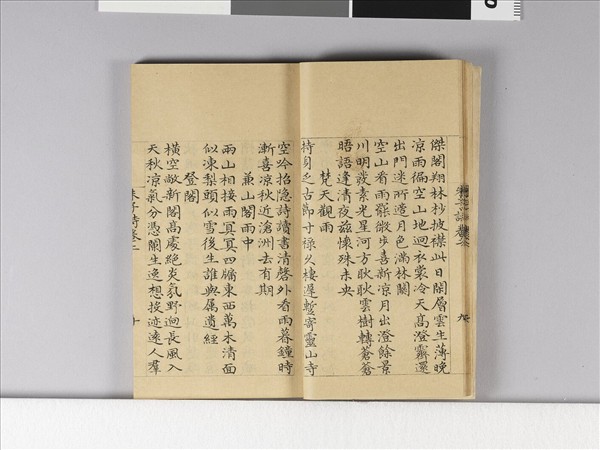 傑閣翔林杪披襟此日閑層雲生薄晚
涼雨徧空山地迥衣裳冷天高澄霽還
出門迷所造月色滿林關
空山看雨罷微步喜新凉月出澄餘景
川明發素光星河方耿耿雲樹轉蒼蒼
晤語逢清夜茲懷殊未央
梵天觀雨
持身乏古節寸祿久棲遲暫寄靈山寺
空吟招隐詩讀書清磬外看雨暮鐘時
漸喜凉秋近滄洲去有期
兼山閣雨中
兩山相接雨冥冥四牖東西萬木清面
似凍梨頭似雪後生誰與屬遺經
登閣
橫空敞新閣高處絶炎氛野迥長風入
天秋凉氣分憑闌生逸想投迹逺人羣
朱子詩卷二
十
九